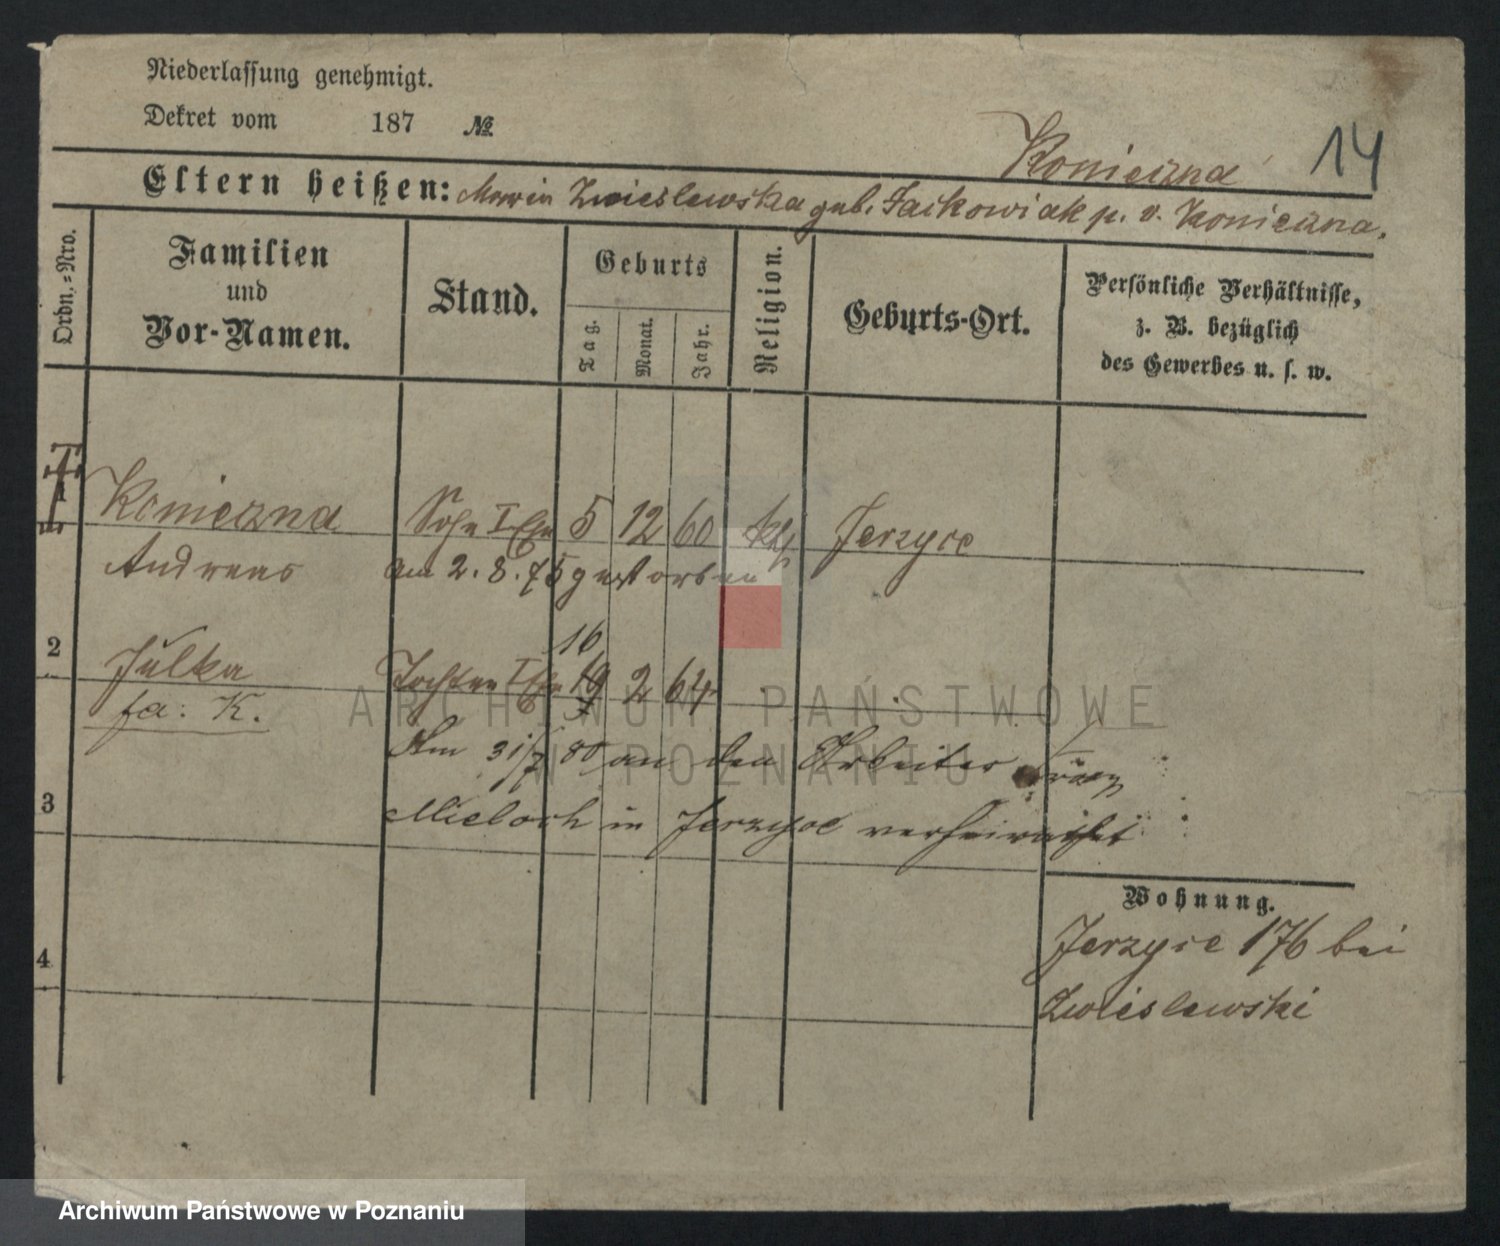 Niederlassung genehmigt.
Dekret vom 187 №
Konieczna 14
Eltern heißen: Marria Zwieslewska geb. Jackowiak p. v. Konieczna.
Ordn.-Nro.
Familien
und
Vor-Namen.
Stand.
Geburts
Tag.
Monat.
Jahr.
Religion.
Geburts-Ort.
Persönliche Verhältnisse,
z. B. bezüglich
des Gewerbes u. s. w.
1 Konieczna Sohn I Ehe 5 12 60 kth Jerzyce
Andreas am 2. 8. 75 gestorben
16
2 Julka Tochter I Ehe 19 2 64
fa: K.
Am 31/7 80 an den Arbeiter Franz
3 Mieloch in Jerzyce verheirathet
Wohnung.
Jerzyce 176 bei
4 Zwieslewski
ARCHIWUM PAŃSTWOWE
W POZNANIU
Archiwum Państwowe w Poznaniu